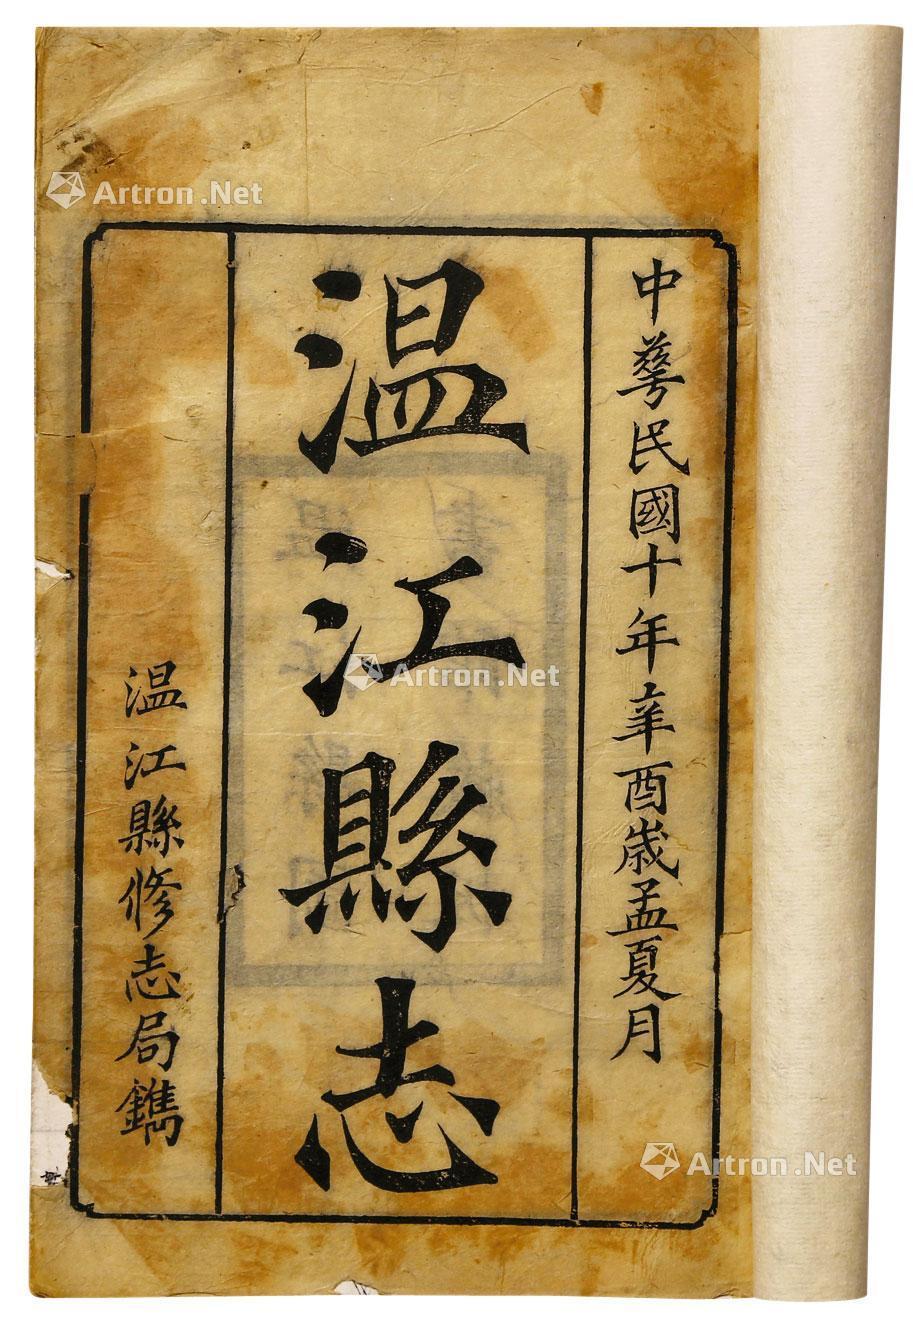 中華民國十年辛酉歲孟夏月
温江縣志
温江縣修志局鐫
Artron.Net
Artron.Net
Artron.Net